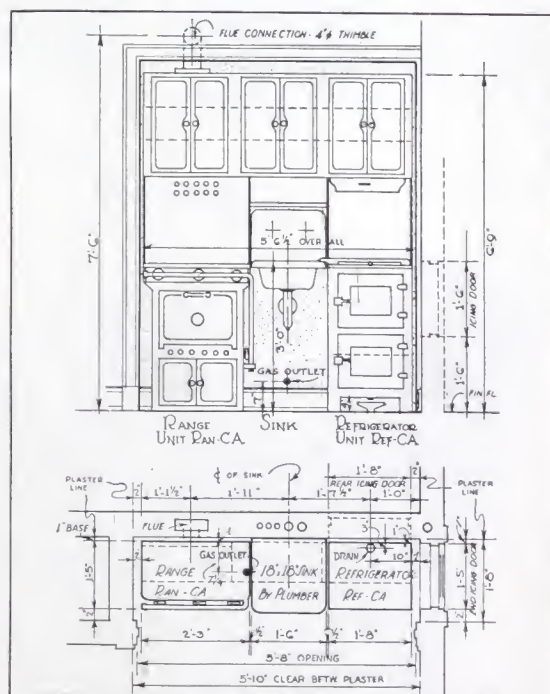 FLUE CONNECTION - 4"ϕ THIMBLE
7'-6"
6'-9"
5'6½" OVER ALL
3'-0"
1'-6"
ICING DOOR
1'-6"
FIN FL
GAS OUTLET
7"
RANGE
UNIT RAN-CA
SINK
REFRIGERATOR
UNIT REF-CA
PLASTER
LINE
2"
1'-1½"
1'-11"
℄ OF SINK
1'-8"
REAR ICING DOOR
1'-7½"
1'-0"
2"
PLASTER
LINE
1" BASE
FLUE
GAS OUTLET
7"
DRAIN
3"
1"
10"
2"
1'-5"
2"
RANGE
RAN-CA
18"x18" SINK
BY PLUMBER
REFRIGERATOR
REF-CA
1'-5"
1'-8"
2"
2'-3"
½"
1'-6"
½"
1'-8"
5'-8" OPENING
5'-10" CLEAR BETW. PLASTER